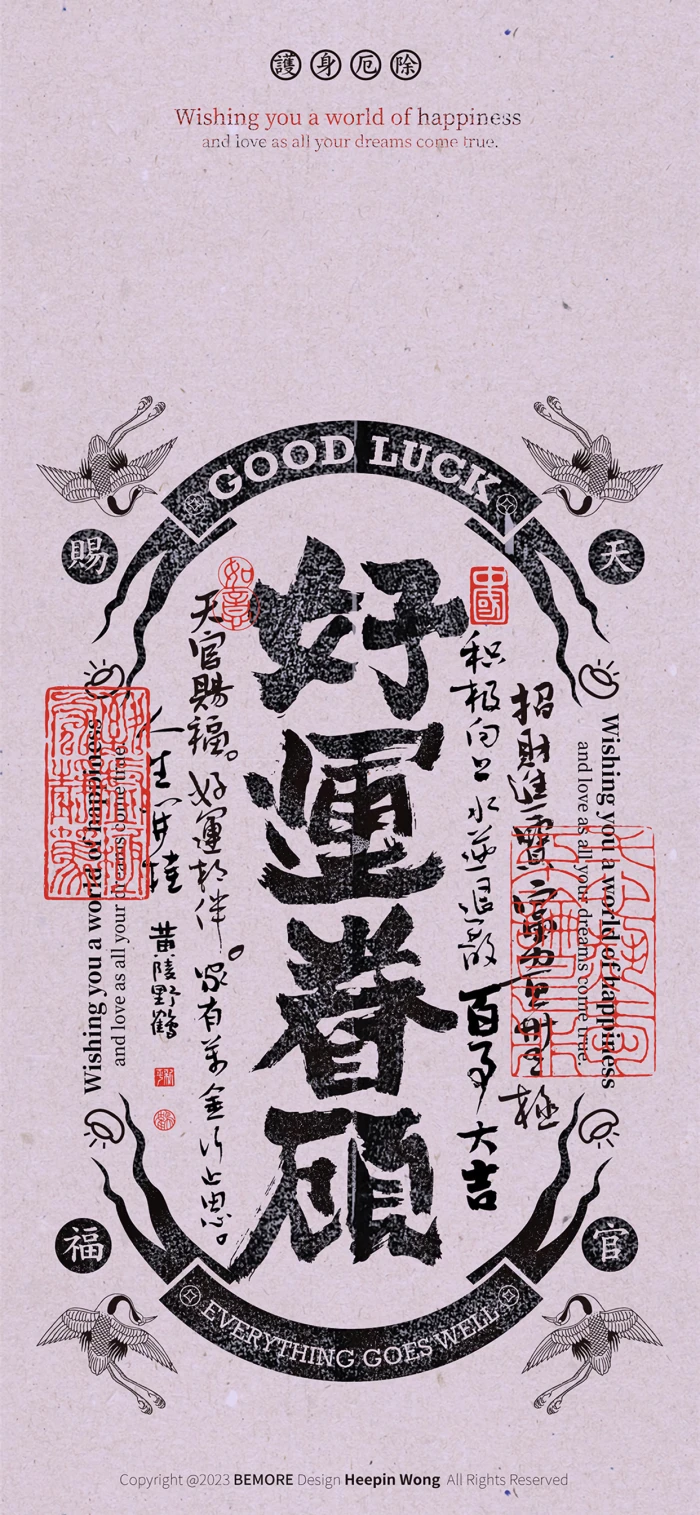 護身厄除
Wishing you a world of happiness
and love as all your dreams come true.
GOOD LUCK
賜
天
好運眷顧
如意
中國
天官賜福。好運相伴。家有萬金
积极向上
百事大吉
招財進寶
極
人生
黄陵野鶴
Wishing you a world of happiness
and love as all your dreams come true.
Wishing you a world of happiness
and love as all your dreams come true.
福
官
EVERYTHING GOES WELL
Copyright @2023 BEMORE Design Heepin Wong All Rights Reserved